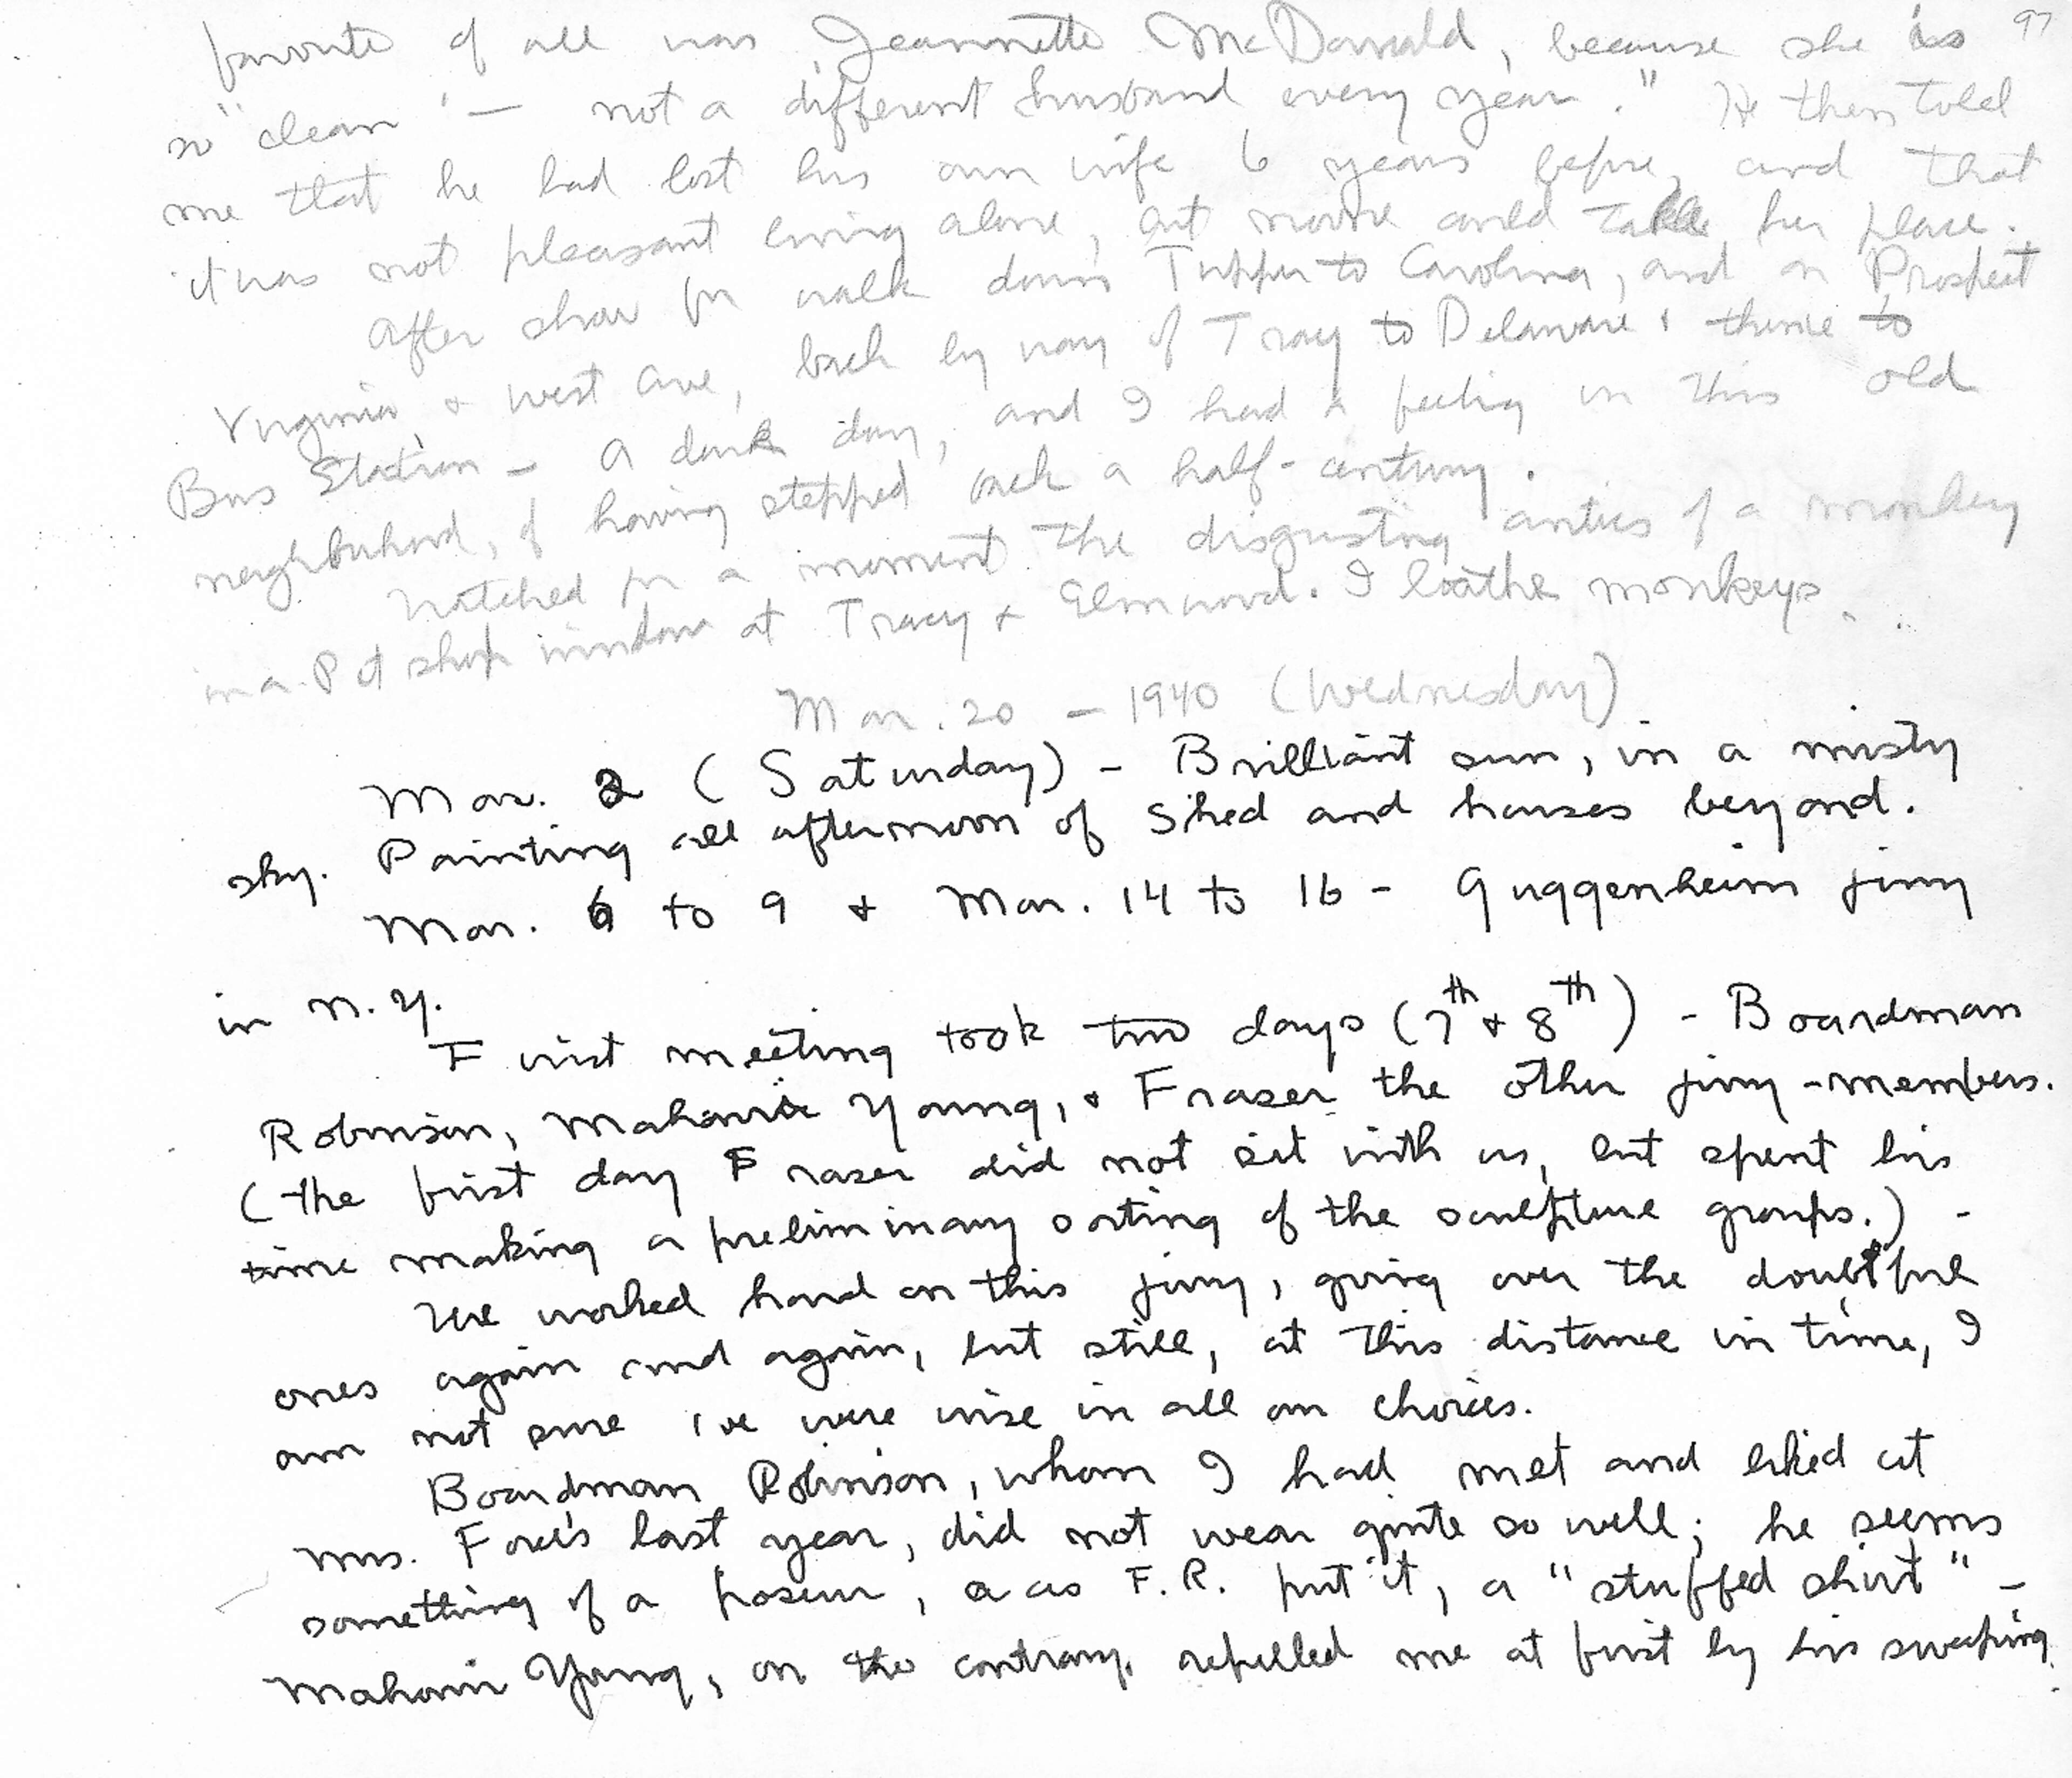 97
favorite of all was Jeannette McDonald, because she is
so "clean" — not a different husband every year." He then told
me that he had lost his own wife 6 years before, and that
it was not pleasant living alone, but no one could take her place.
After show for walk down Tupper to Carolina, and on Prospect
Virginia & West Ave, back by way of Tracy to Delaware & thence to
Bus Station — A dark day, and I had a feeling in this old
neighborhood, of having stepped back a half-century.
Watched for a moment the disgusting antics of a monkey
in a Pet shop window at Tracy & Elmwood. I loathe monkeys.
Mar. 20 — 1940 (Wednesday)
Mar. 2 (Saturday) - Brilliant sun, in a misty
sky. Painting all afternoon of shed and houses beyond.
Mar. 6 to 9 & Mar. 14 to 16 - Guggenheim jury
in N.Y.
First meeting took two days (7th & 8th) - Boardman
Robinson, Mahonri Young, & Fraser the other jury-members.
(The first day Fraser did not sit with us, but spent his
time making a preliminary sorting of the sculpture groups.) -
We worked hard on this jury, going over the doubtful
ones again and again, but still, at this distance in time, I
am not sure we were wise in all our choices.
Boardman Robinson, whom I had met and liked at
Mrs. Force's last year, did not wear quite so well; he seems
something of a poseur, or as F.R. put it, a "stuffed shirt" -
Mahonri Young, on the contrary, repelled me at first by his sweeping